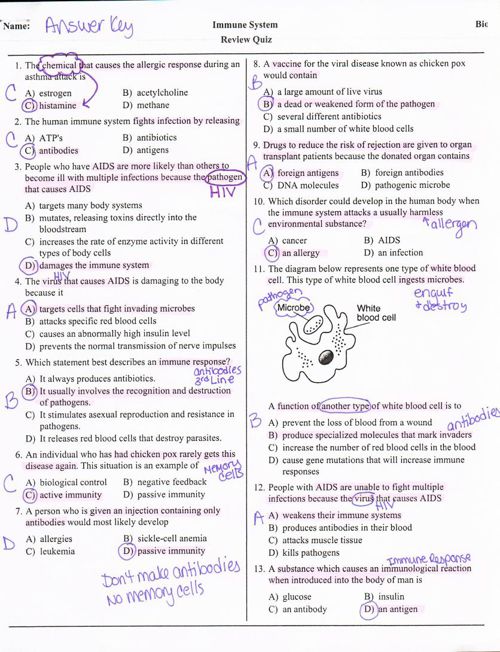 Name: Answer Key
Immune System
Bio
Review Quiz
1. The chemical that causes the allergic response during an
asthma attack is
C
A) estrogen B) acetylcholine
C) histamine D) methane
2. The human immune system fights infection by releasing
C
A) ATP's B) antibiotics
C) antibodies D) antigens
3. People who have AIDS are more likely than others to
become ill with multiple infections because the pathogen
that causes AIDS
HIV
A) targets many body systems
D
B) mutates, releasing toxins directly into the
bloodstream
C) increases the rate of enzyme activity in different
types of body cells
D) damages the immune system
HIV
4. The virus that causes AIDS is damaging to the body
because it
A
A) targets cells that fight invading microbes
B) attacks specific red blood cells
C) causes an abnormally high insulin level
D) prevents the normal transmission of nerve impulses
5. Which statement best describes an immune response?
antibodies
3rd Line
A) It always produces antibiotics.
B
B) It usually involves the recognition and destruction
of pathogens.
C) It stimulates asexual reproduction and resistance in
pathogens.
D) It releases red blood cells that destroy parasites.
6. An individual who has had chicken pox rarely gets this
disease again. This situation is an example of
memory
cells
C
A) biological control B) negative feedback
C) active immunity D) passive immunity
7. A person who is given an injection containing only
antibodies would most likely develop
D
A) allergies B) sickle-cell anemia
C) leukemia D) passive immunity
Don't make antibodies
No memory cells
8. A vaccine for the viral disease known as chicken pox
would contain
B
A) a large amount of live virus
B) a dead or weakened form of the pathogen
C) several different antibiotics
D) a small number of white blood cells
9. Drugs to reduce the risk of rejection are given to organ
transplant patients because the donated organ contains
A
A) foreign antigens B) foreign antibodies
C) DNA molecules D) pathogenic microbe
10. Which disorder could develop in the human body when
the immune system attacks a usually harmless
environmental substance?
allergen
C
A) cancer B) AIDS
C) an allergy D) an infection
11. The diagram below represents one type of white blood
cell. This type of white blood cell ingests microbes.
pathogen
engulf
+ destroy
Microbe
White
blood cell
A function of another type of white blood cell is to
B
antibodies
A) prevent the loss of blood from a wound
B) produce specialized molecules that mark invaders
C) increase the number of red blood cells in the blood
D) cause gene mutations that will increase immune
responses
12. People with AIDS are unable to fight multiple
infections because the virus that causes AIDS
HIV
A
A) weakens their immune systems
B) produces antibodies in their blood
C) attacks muscle tissue
D) kills pathogens
Immune Response
13. A substance which causes an immunological reaction
when introduced into the body of man is
A) glucose B) insulin
C) an antibody D) an antigen